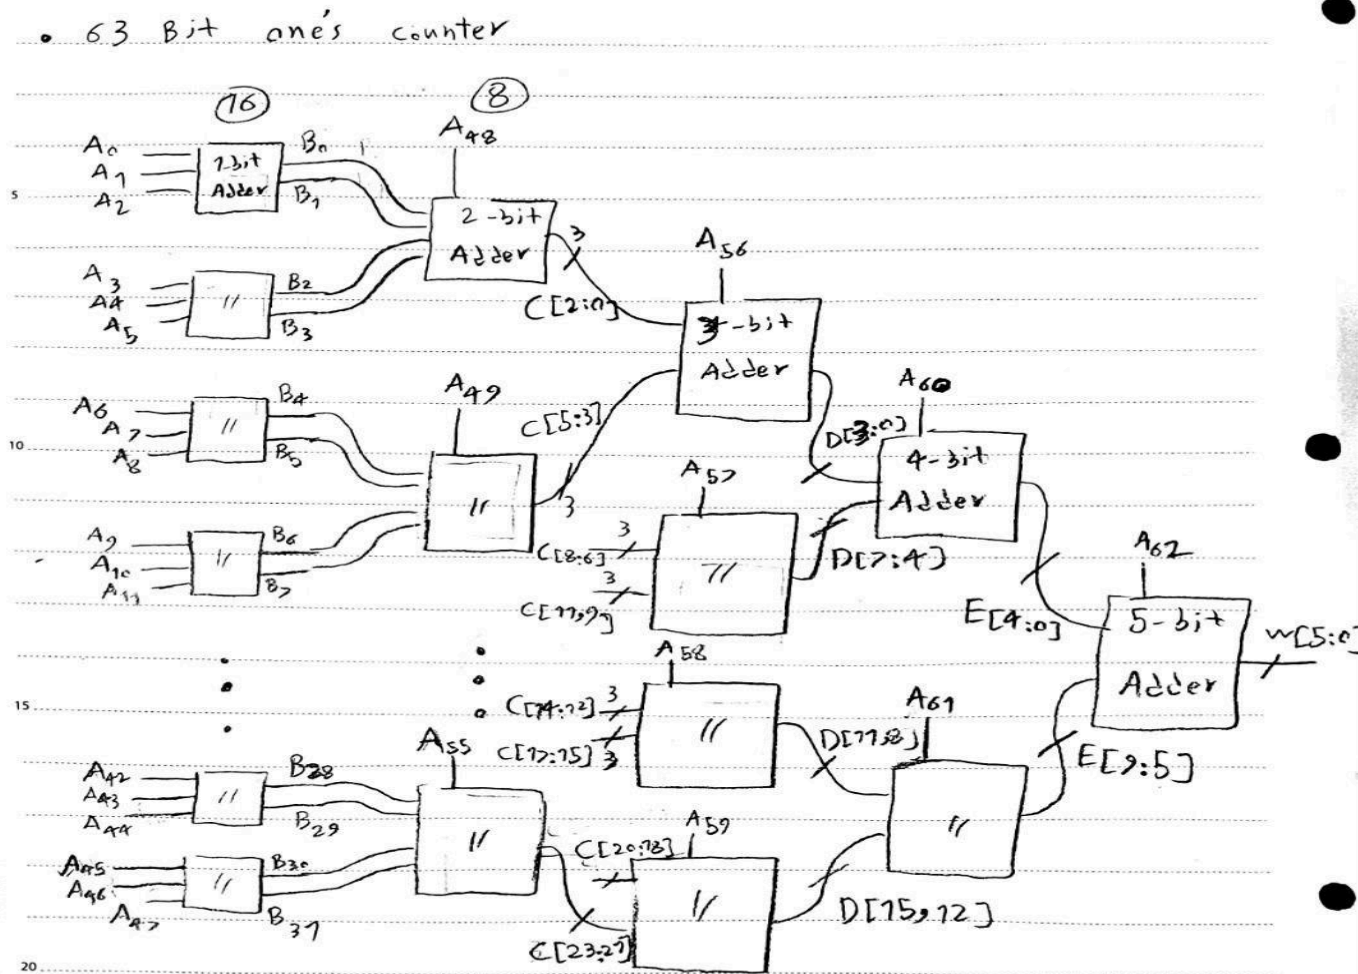 • 63 Bit one's counter
16
8
A0
A1
A2
1-bit
Adder
B0
B1
A48
2-bit
Adder
3
C[2:0]
A3
A4
A5
//
B2
B3
A56
3-bit
Adder
A6
A7
A8
//
B4
B5
A49
//
C[5:3]
3
A9
A10
A11
//
B6
B7
D[3:0]
A60
4-bit
Adder
A57
C[8:6]
3
C[11,9]
3
//
D[7:4]
E[4:0]
A62
5-bit
Adder
w[5:0]
A58
C[14:12]
3
C[17:15]
3
//
D[11:8]
A61
//
E[9:5]
A42
A43
A44
//
B28
B29
A55
//
A45
A46
A47
//
B30
B31
C[20:18]
A59
C[23:21]
//
D[15,12]
5
10
15
20